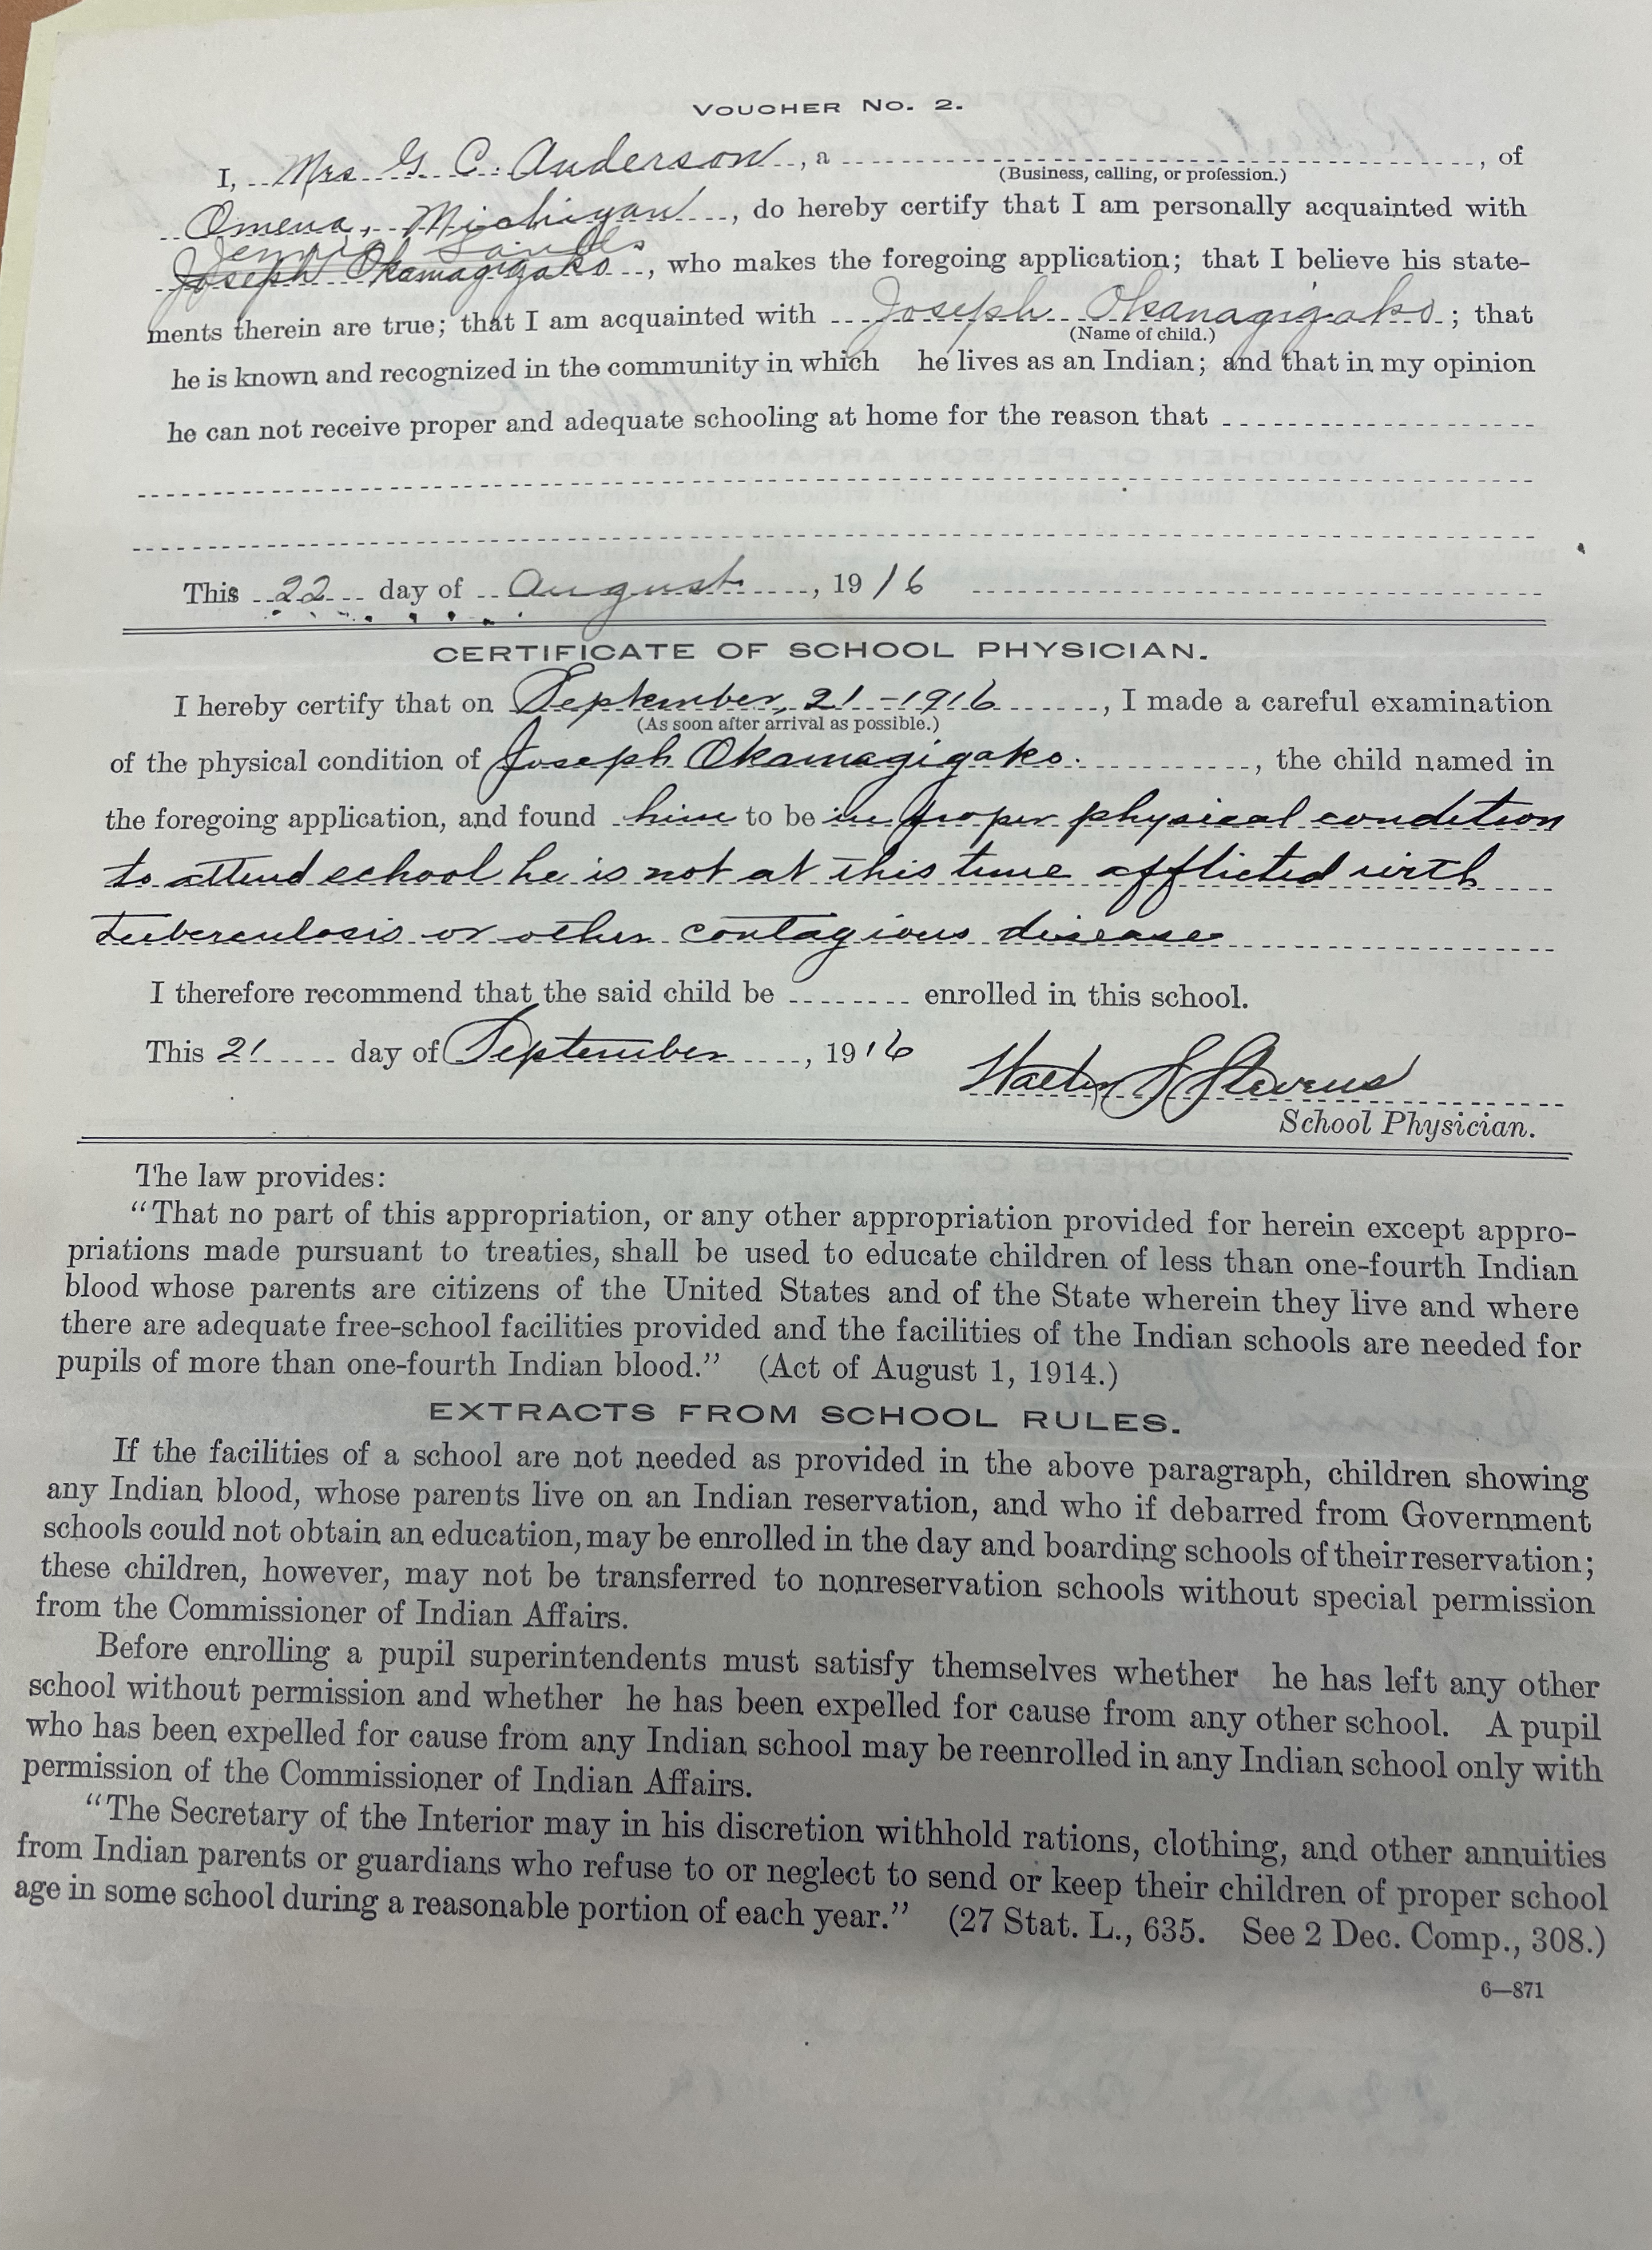 VOUCHER NO. 2.
I, Mrs G. C. Anderson, a , of
(Business, calling, or profession.)
Omena, Michigan, do hereby certify that I am personally acquainted with
Jennie Sands
Joseph Okamagigako, who makes the foregoing application; that I believe his state-
ments therein are true; that I am acquainted with Joseph Okanagigako; that
(Name of child.)
he is known and recognized in the community in which he lives as an Indian; and that in my opinion
he can not receive proper and adequate schooling at home for the reason that
This 22 day of August, 1916
CERTIFICATE OF SCHOOL PHYSICIAN.
I hereby certify that on September, 21-1916, I made a careful examination
(As soon after arrival as possible.)
of the physical condition of Joseph Okamagigako., the child named in
the foregoing application, and found him to be in proper physical condition
to attend school he is not at this time afflicted with
tuberculosis or other contagious disease
I therefore recommend that the said child be enrolled in this school.
This 21 day of September, 1916
Walter S Stevens
School Physician.
The law provides:
"That no part of this appropriation, or any other appropriation provided for herein except appro-
priations made pursuant to treaties, shall be used to educate children of less than one-fourth Indian
blood whose parents are citizens of the United States and of the State wherein they live and where
there are adequate free-school facilities provided and the facilities of the Indian schools are needed for
pupils of more than one-fourth Indian blood." (Act of August 1, 1914.)
EXTRACTS FROM SCHOOL RULES.
If the facilities of a school are not needed as provided in the above paragraph, children showing
any Indian blood, whose parents live on an Indian reservation, and who if debarred from Government
schools could not obtain an education, may be enrolled in the day and boarding schools of their reservation;
these children, however, may not be transferred to nonreservation schools without special permission
from the Commissioner of Indian Affairs.
Before enrolling a pupil superintendents must satisfy themselves whether he has left any other
school without permission and whether he has been expelled for cause from any other school. A pupil
who has been expelled for cause from any Indian school may be reenrolled in any Indian school only with
permission of the Commissioner of Indian Affairs.
"The Secretary of the Interior may in his discretion withhold rations, clothing, and other annuities
from Indian parents or guardians who refuse to or neglect to send or keep their children of proper school
age in some school during a reasonable portion of each year." (27 Stat. L., 635. See 2 Dec. Comp., 308.)
6—871